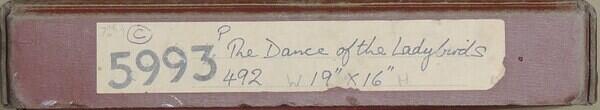 C
5993
P The Dance of the Ladybirds
492 W 19" X 16" H